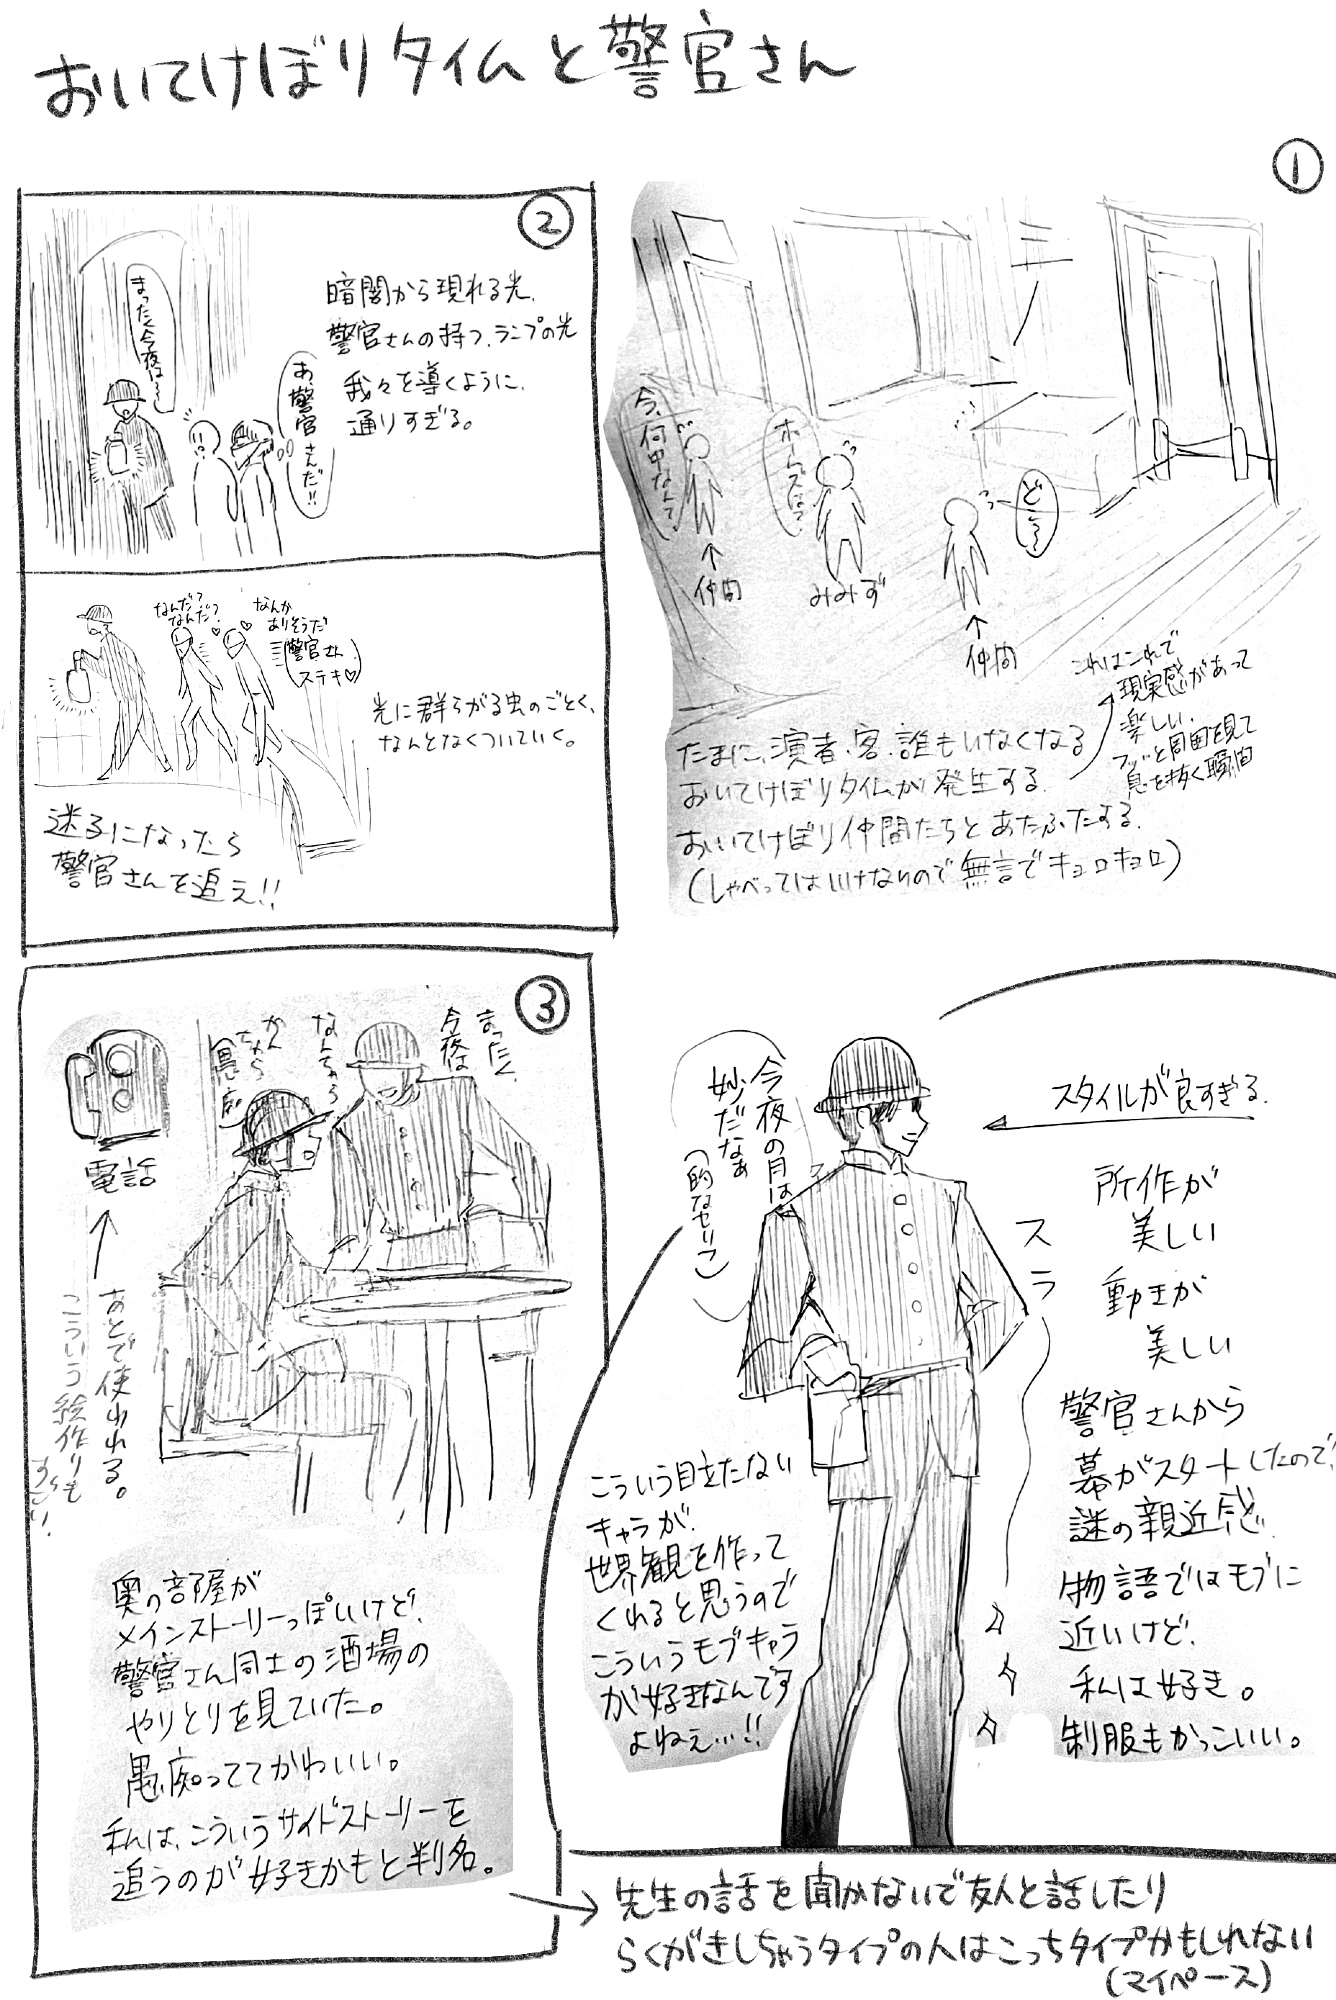 おいてけぼりタイムと警官さん
①
今、何中なんて、
ホームズなって、
ど…
仲間
みみず
仲間
たまに、演者、客、誰もいなくなる
おいてけぼりタイムが発生する。
おいてけぼり仲間たちとあたふたする。
(しゃべってはいけないので無言でキョロキョロ)
これはこれで
現実感があって
楽しい。
フッと周囲を見て
息を抜く瞬間
②
まったく今夜は〜
あ、警官さんだ!!
暗闇から現れる光、
警官さんの持つ、ランプの光
我々を導くように、
通りすぎる。
なんだ?
なんだ?
なんか
ありそうだ
警官さん
ステキ♡
光に群らがる虫のごとく、
なんとなくついていく。
迷子になったら
警官さんを追え!!
③
まったく、
今夜は
なんちゃら
かんちゃら
愚痴
電話
あとで使われる。
こういう絵作りも
すごい!
奥の部屋が
メインストーリーっぽいけど、
警官さん同士の酒場の
やりとりを見ていた。
愚痴っててかわいい。
私は、こういうサイドストーリーを
追うのが好きかもと判名。
先生の話を聞かないで友人と話したり
らくがきしちゃうタイプの人はこっちタイプかもしれない
(マイペース)
今夜の月は
妙だなぁ
(的なセリフ)
スタイルが良すぎる。
スラ
所作が
美しい
動きが
美しい
警官さんから
幕がスタートしたので、
謎の親近感
物語ではモブに
近いけど、
私は好き。
制服もかっこいい。
こういう目立たない
キャラが、
世界観を作って
くれると思うので
こういうモブキャラ
が好きなんです
よねぇ…!!